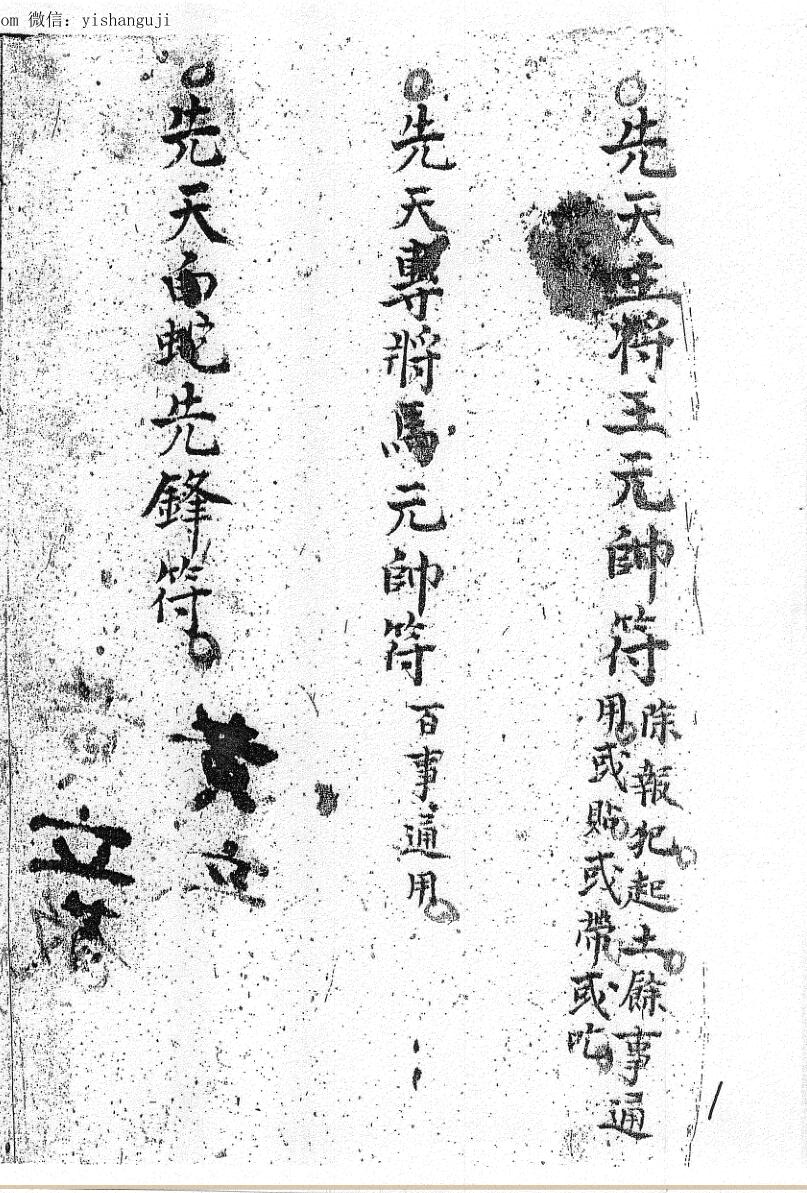 om 微信：yishanguji
○先天主将王元帥符
除報犯起土餘事通
用或貼或帶或吃
○先天專將馬元帥符
百事通用
○先天白蛇先鋒符
黃立
立